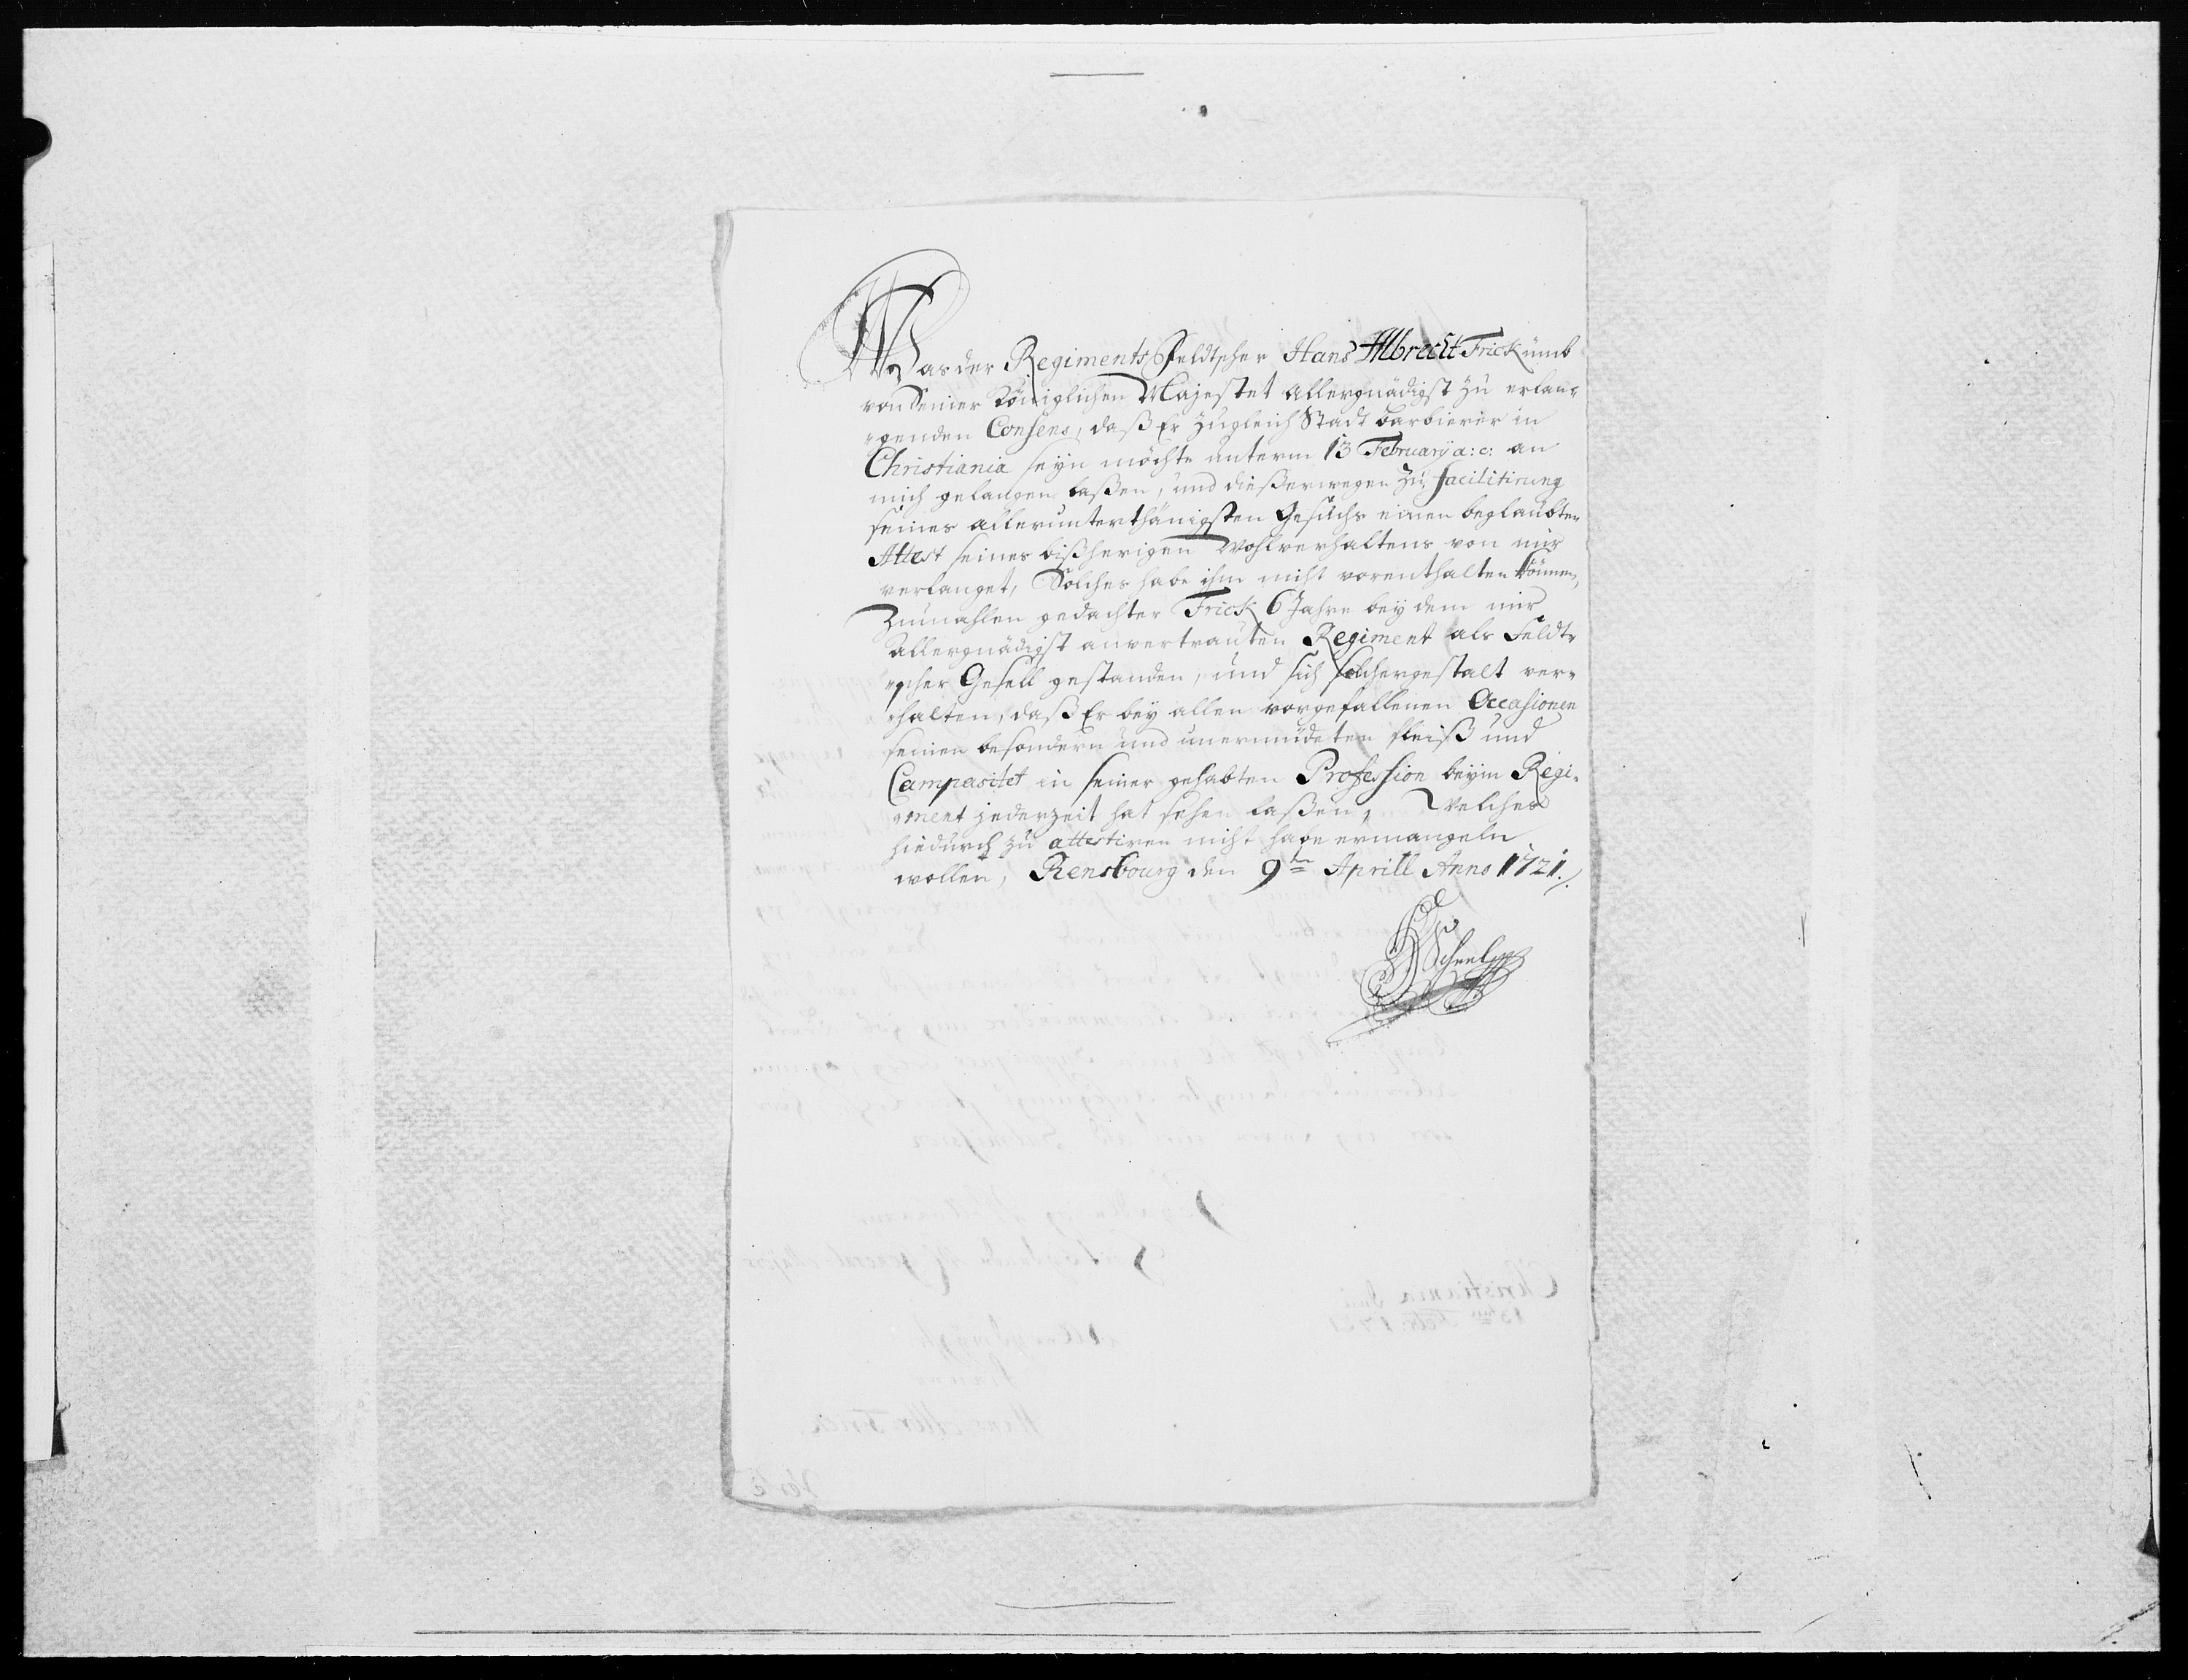 Was der Regiments Feldtscher Hans Albrecht Frick ümb
von Seiner Königlichen Majestet Allergnädigst zu erlan-
-genden Consens, daß Er zugleich Stadt Barbierer in
Christiania seyn möchte unterm 13 February a: c: an
mich gelangen laßen, und dießerwegen zu facilitirung
seines allerunterthänigsten Gesuchs einen beglaubten
Attest seines bißherigen Wohlverhaltens von mir
verlanget, Solches habe ihm nicht vorenthalten können,
Zumahlen gedachter Frick 6 Jahre bey dem mir
Allergnädigst anvertrauten Regiment als Feldt-
-scher Gesell gestanden, und sich solchergestalt ver-
-halten, daß Er bey allen vorgefallenen Occasionen
seinen besondern und unermüdeten fleiß und
Campasitet in seiner gehabten Profession beym Regi-
-ment jederzeit hat sehen laßen, Welches
hiedurch zu attestiren nicht habe ermangeln
wollen, Rensbourg den 9ten Aprill Anno 1721.
Scheel